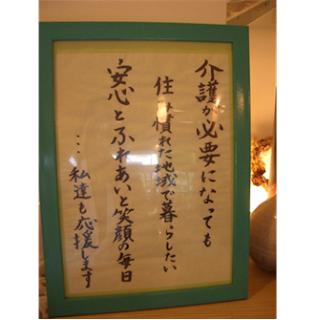 介護が必要になっても
住み慣れた地域で暮らしたい
安心とふれあいと笑顔の毎日
…私達も応援します